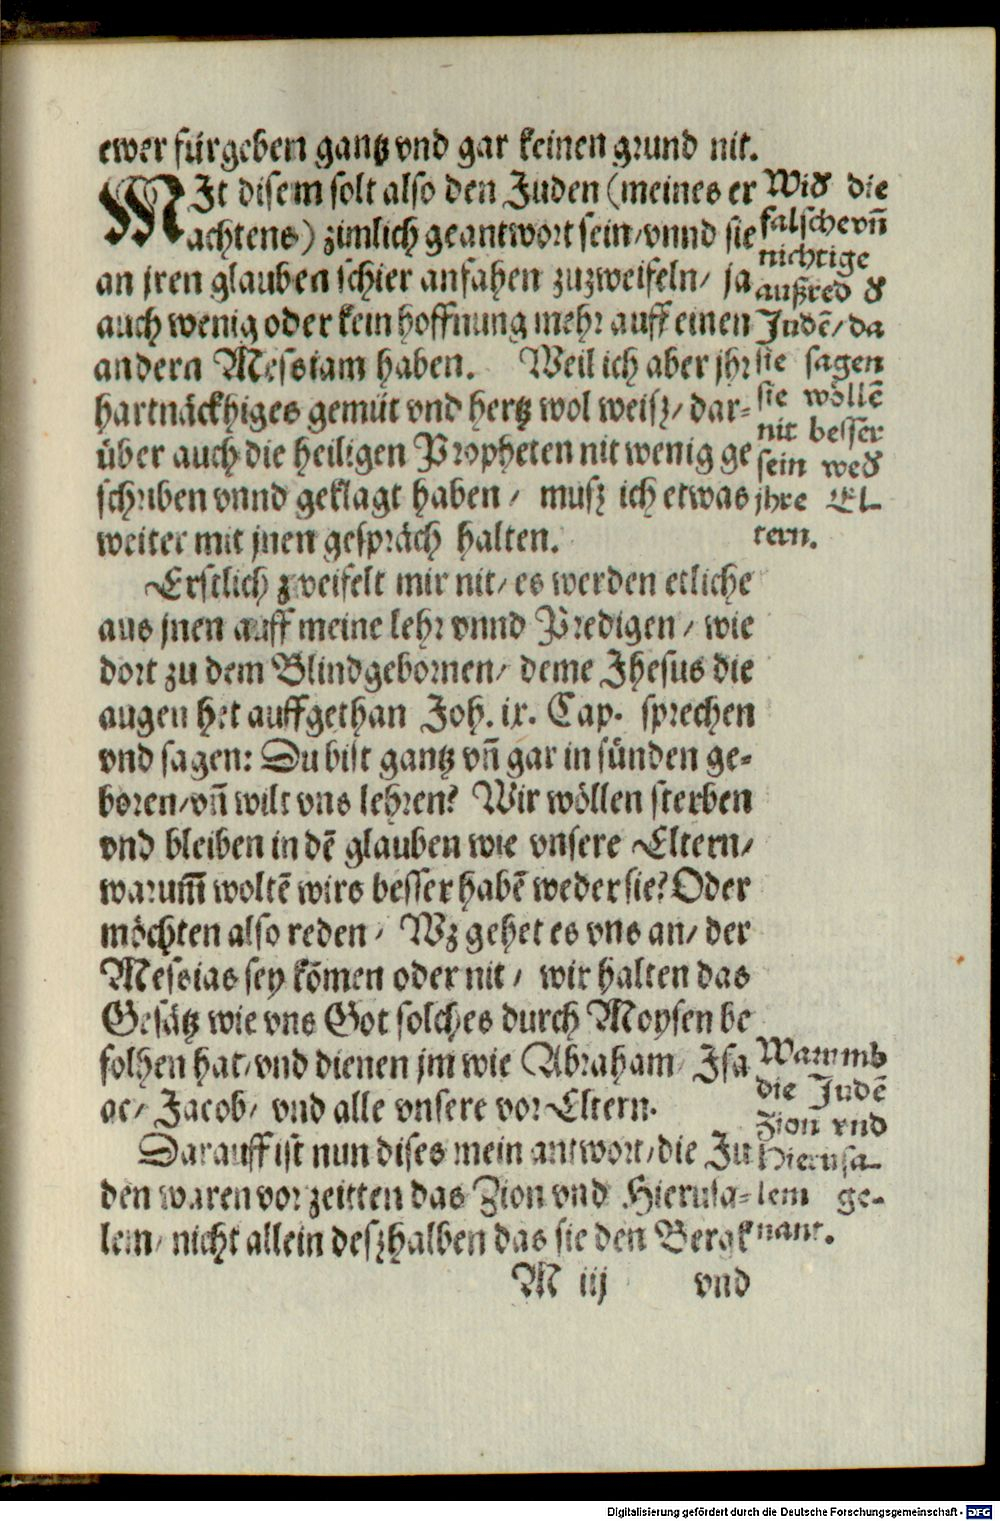 ewer fürgeben gantz vnd gar keinen grund nit.
MIt disem solt also den Juden (meines er
achtens) zimlich geantwort sein/vnnd sie
an jren glauben schier anfahen zuzweifeln/ ja
auch wenig oder kein hoffnung mehr auff einen
andern Messiam haben. Weil ich aber jhr
hartnäckhiges gemüt vnd hertz wol weisz/ dar-
über auch die heiligen Propheten nit wenig ge
schriben vnnd geklagt haben/ musz ich etwas
weiter mit jnen gespräch halten.
Wid die
falsche vn̄
nichtige
außred d
Judē/ da
sie sagen
sie wöllē
nit besser
sein wed
jhre El-
tern.
Erstlich zweifelt mir nit/ es werden etliche
aus jnen auff meine lehr vnnd Predigen/ wie
dort zu dem Blindgebornen/ deme Jhesus die
augen het auffgethan Joh. ix. Cap. sprechen
vnd sagen: Du bist gantz vn̄ gar in sünden ge-
boren/vn̄ wilt vns lehren? Wir wöllen sterben
vnd bleiben in dē glauben wie vnsere Eltern/
warum̄ woltē wirs besser habē weder sie? Oder
möchten also reden/ Wz gehet es vns an/ der
Messias sey kōmen oder nit/ wir halten das
Gesätz wie vns Got solches durch Moysen be
folhen hat/vnd dienen jm wie Abraham/ Isa
ac/ Jacob/ vnd alle vnsere vor Eltern.
Darauff ist nun dises mein antwort/die Ju
den waren vor zeitten das Zion vnd Hierusa-
lem/ nicht allein deszhalben das sie den Bergk
Warumb
die Judē
Zion vnd
Hierusa-
lem ge-
nant.
M iij vnd
Digitalisierung gefördert durch die Deutsche Forschungsgemeinschaft - DFG